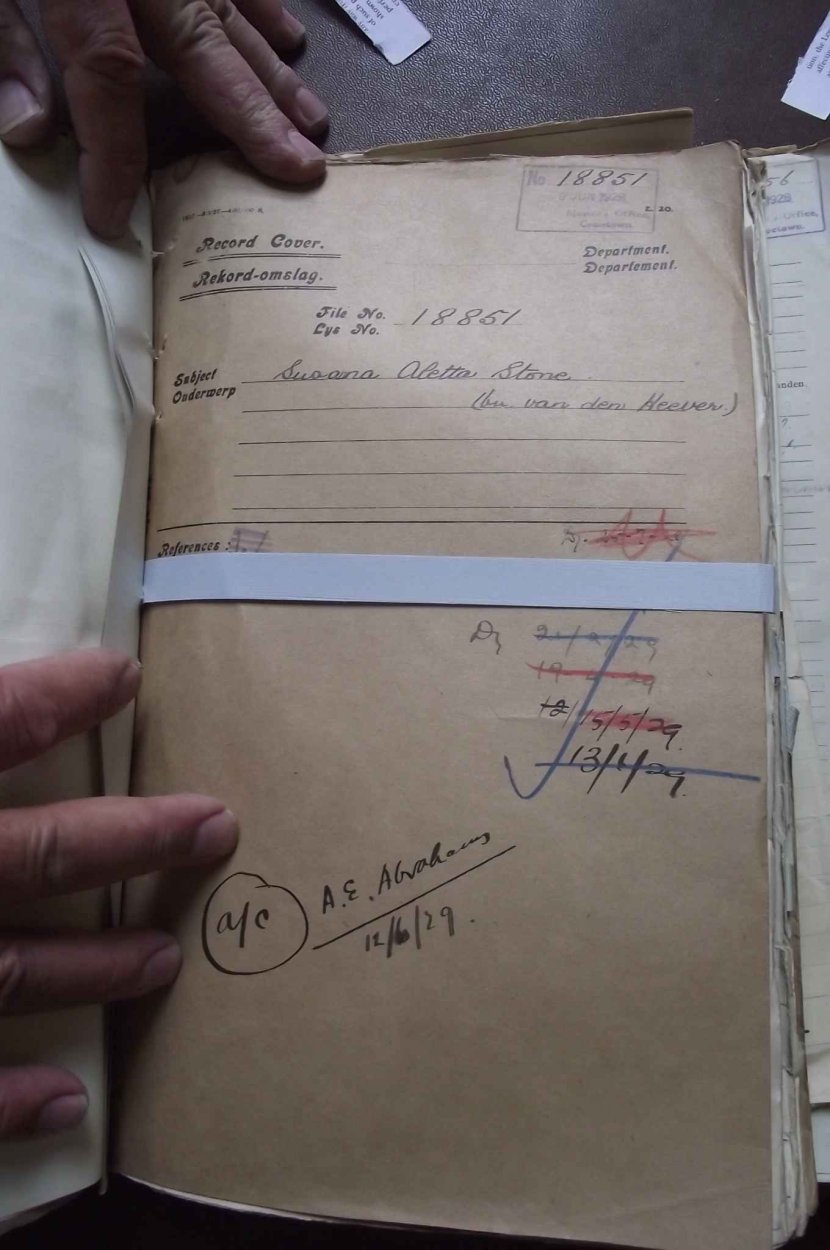 No. 18851
Master's Office,
Capetown.
Z. 20.
Record Cover.
Rekord-omslag.
Department.
Departement.
File No.
Lys No.
18851
Subject
Onderwerp
Susana Aletta Stone
(bn. van den Heever.)
References :
Dy
15/5/29
A.E. Abrahams
a/c
12/6/29.